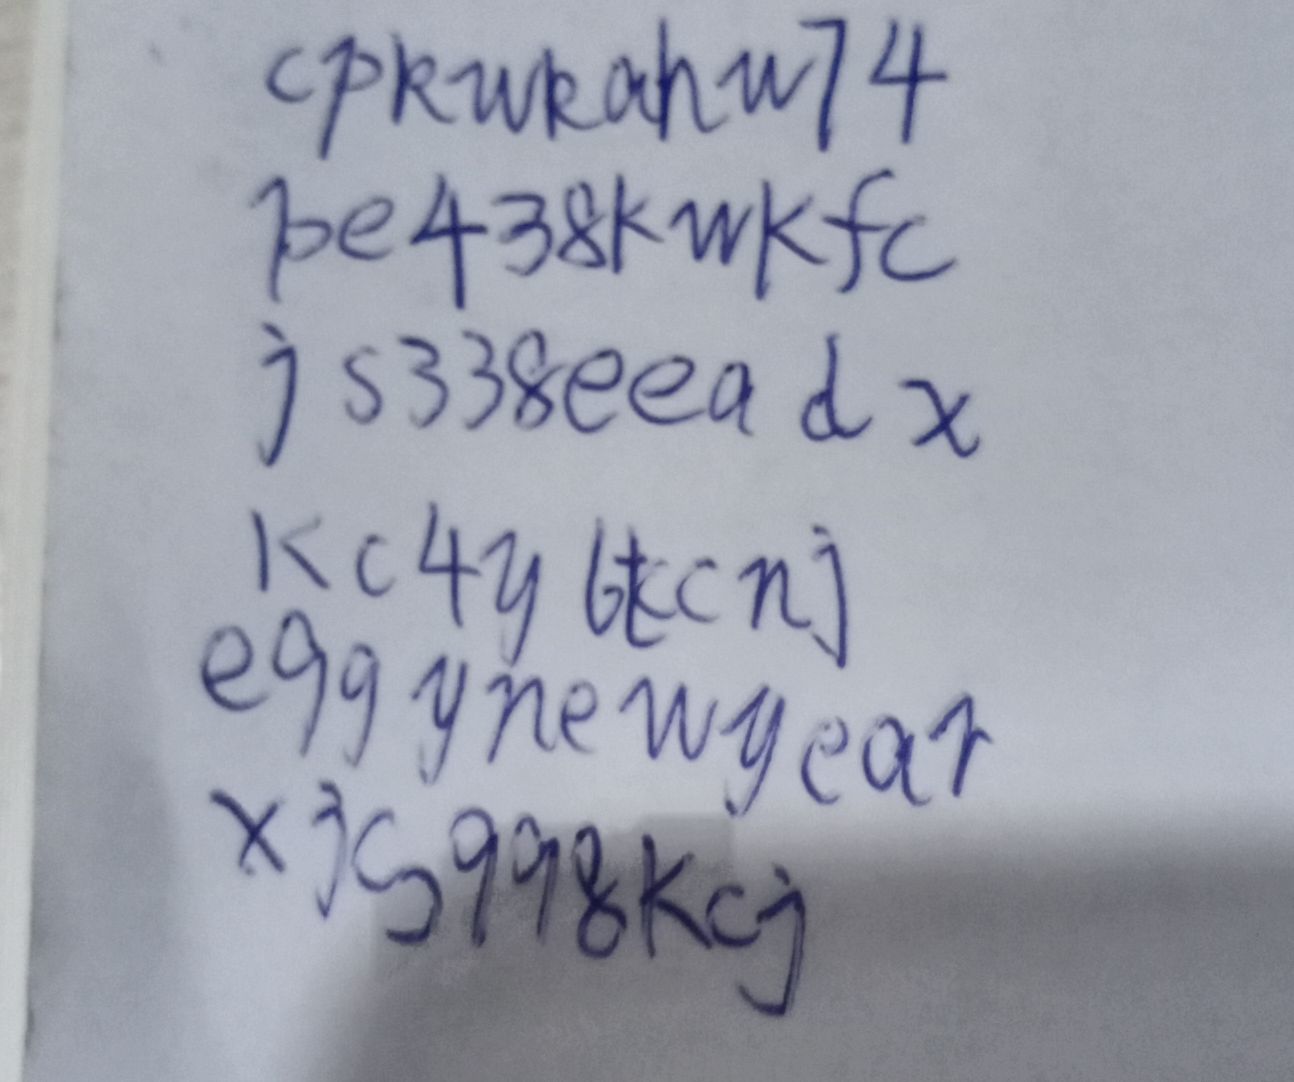 cpkwkahw74
be438kwkfc
js338eeadx
kc4y6tkcnj
eggynewyear
xjcg998kcj